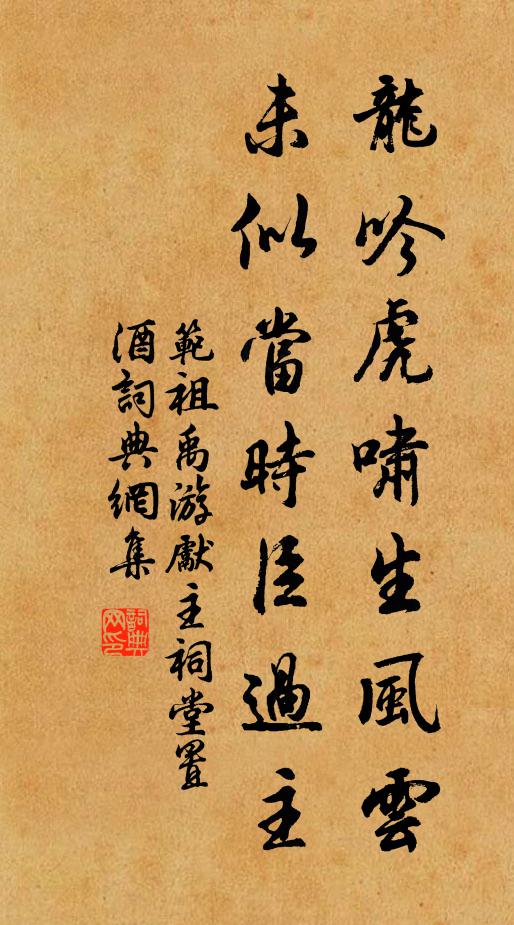 龍吟虎嘯生風雲
未似當時臣過主
範祖禹游獻主祠堂置
酒詞典網集
詞典
网印